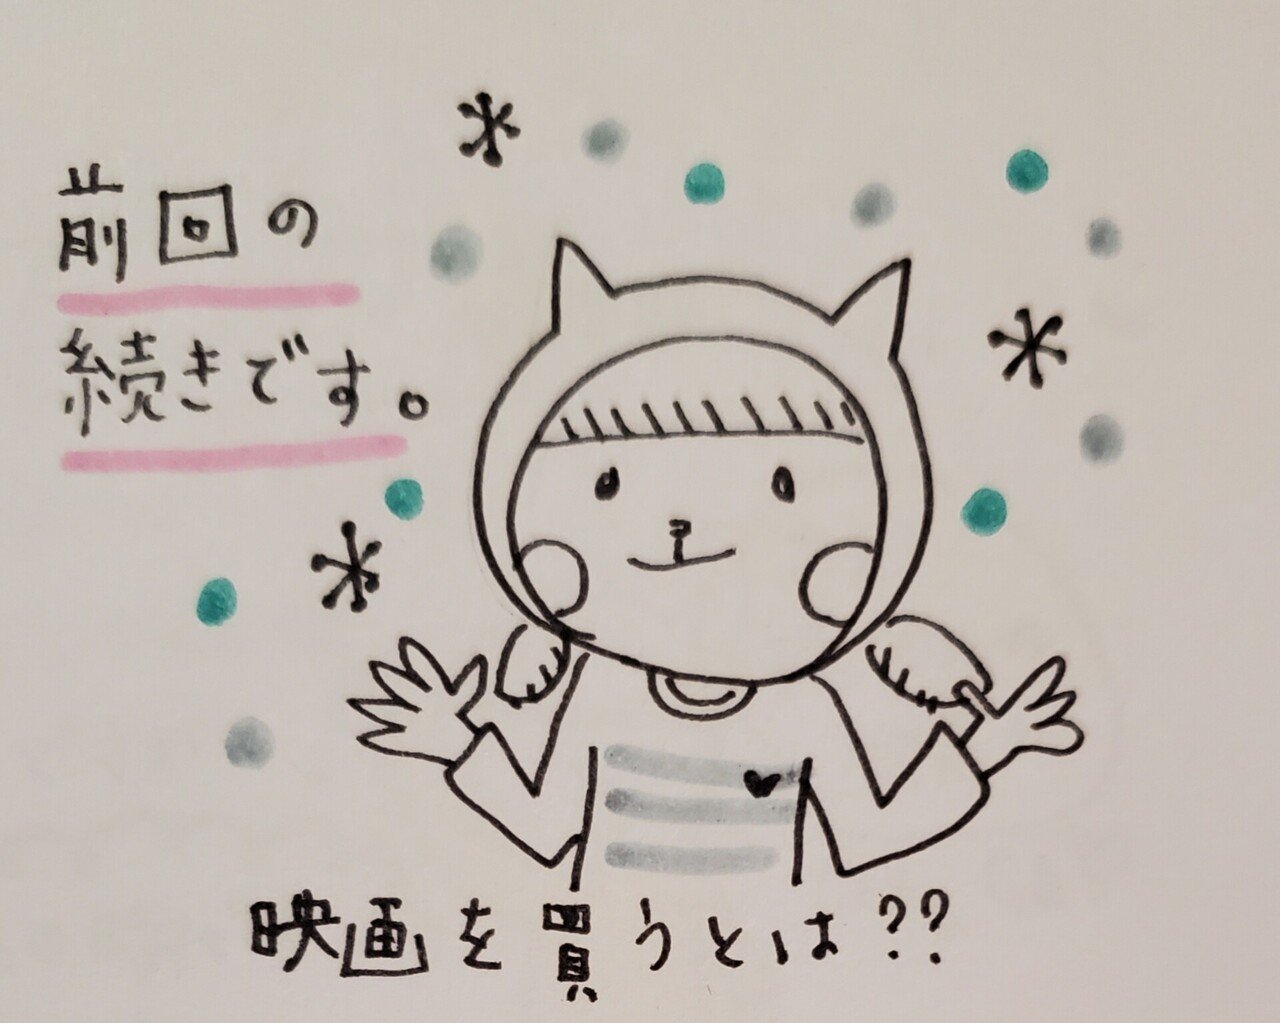 前回の
続きです。
映画を買うとは??